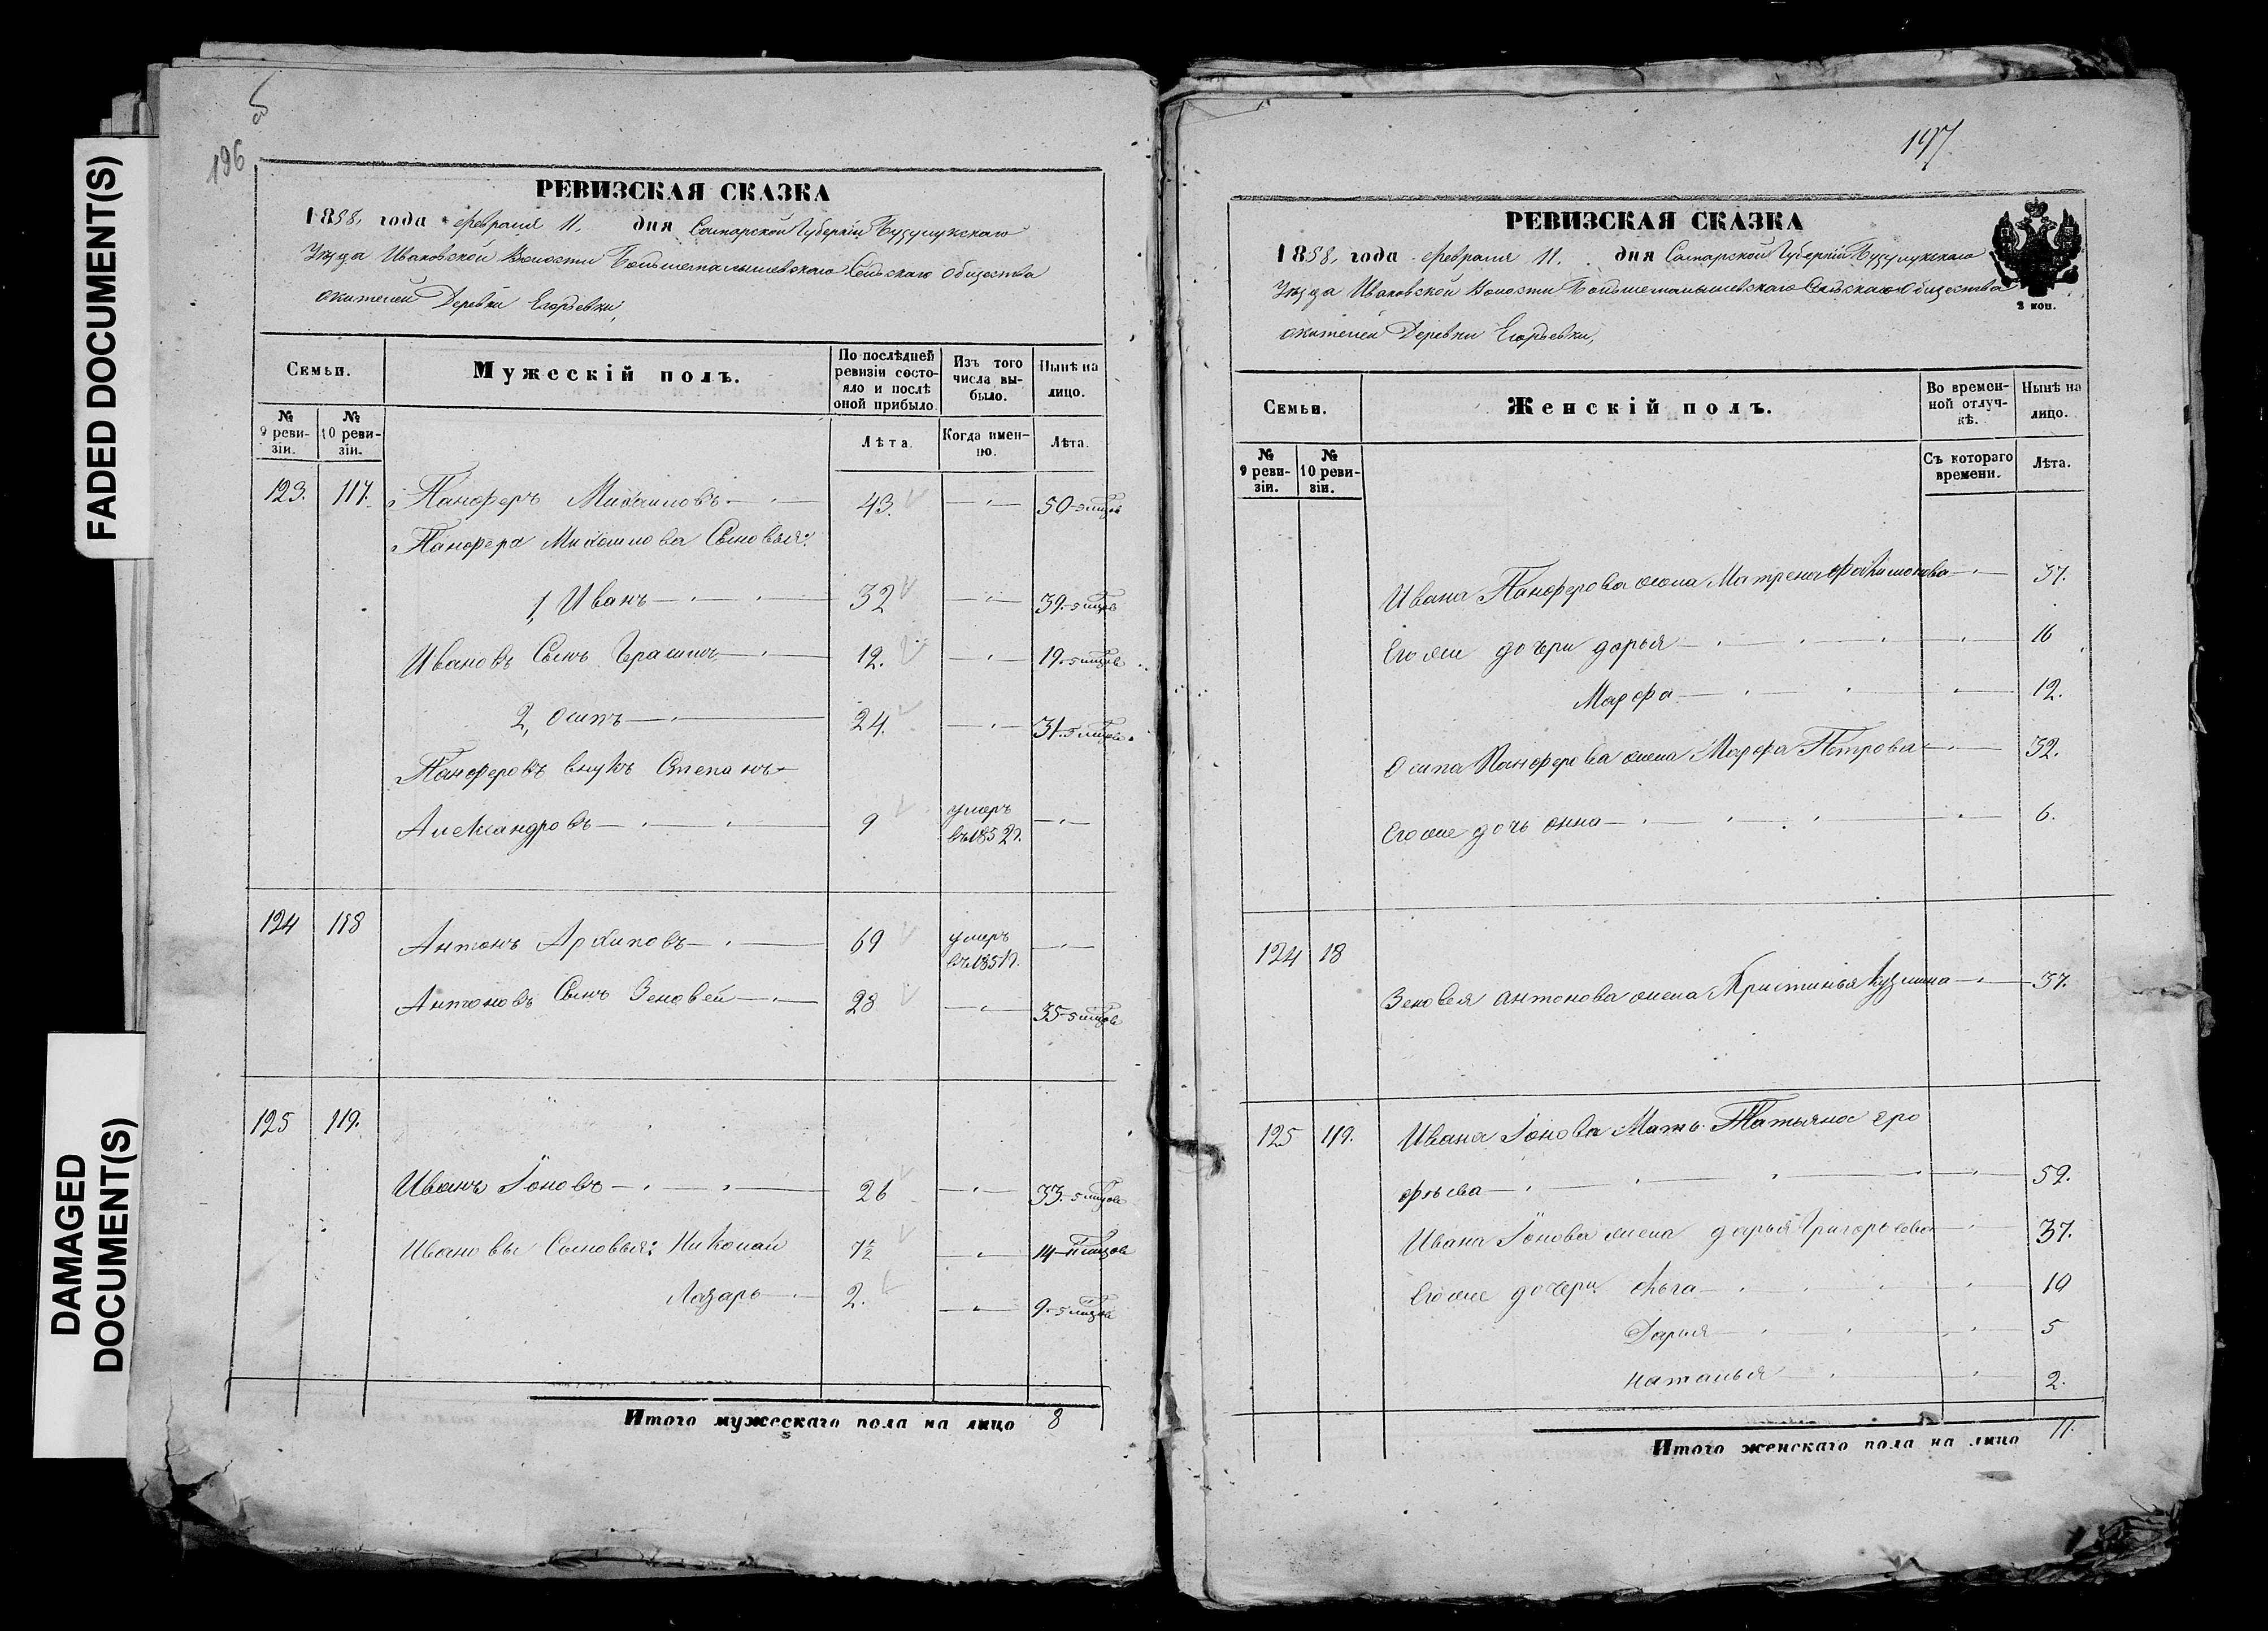 FADED DOCUMENT(S)
DAMAGED
DOCUMENT(S)
196
РЕВИЗСКАЯ СКАЗКА
1858, года февраля 11. дня Самарской Губерніи Бузулукскаго
Уѣзда Ивановской Волости Большемалышевскаго Сельскаго Общества
жителей Деревни Егорьевки,
Семьи.
Мужескій полъ.
По послѣдней ревизіи состояло и послѣ оной прибыло.
Изъ того числа выбыло.
Нынѣ на лицо.
№ 9 ревизіи.
№ 10 ревизіи.
Лѣта.
Когда именно.
Лѣта.
123. 117. Панферъ Михаиловъ 43. 50
Панфера Михаилова Сыновья:
1, Иванъ 32 39
Ивановъ Сынъ Герасимъ 12. 19
2, Осипъ 24. 31
Панферовъ внукъ Степанъ
Александровъ 9 умеръ въ 1852 г.
124 118 Антонъ Архиповъ 69 умеръ въ 1851 г.
Антоновъ Сынъ Зеновей 28 35
125 119.
Иванъ Іоновъ 26 33.
Ивановы Сыновья: Николай 7½ 14
Лазарь 2. 9
Итого мужескаго пола на лицо 8
197
РЕВИЗСКАЯ СКАЗКА
1858, года февраля 11. дня Самарской Губерніи Бузулукскаго
Уѣзда Ивановской Волости Большемалышевскаго Сельскаго Общества
жителей Деревни Егорьевки,
3 коп.
Семьи.
Женскій полъ.
Во временной отлучкѣ.
Нынѣ на лицо.
№ 9 ревизіи.
№ 10 ревизіи.
Съ котораго времени.
Лѣта.
Ивана Панферова жена Матрена 37.
Его же дочери дарья 16
Марфа 12.
Осипа Панферова жена Марфа Петрова 32.
Его же дочь анна 6.
124 18
Зеновея антонова жена Кристинья Кузмина 37.
125 119. Ивана Іонова Мать Татьяна еро
фѣева 59.
Ивана Іонова жена дарья Григорьева 37.
Его же дочери 10
Дарья 5
наталья 2.
Итого женскаго пола на лицо 11.